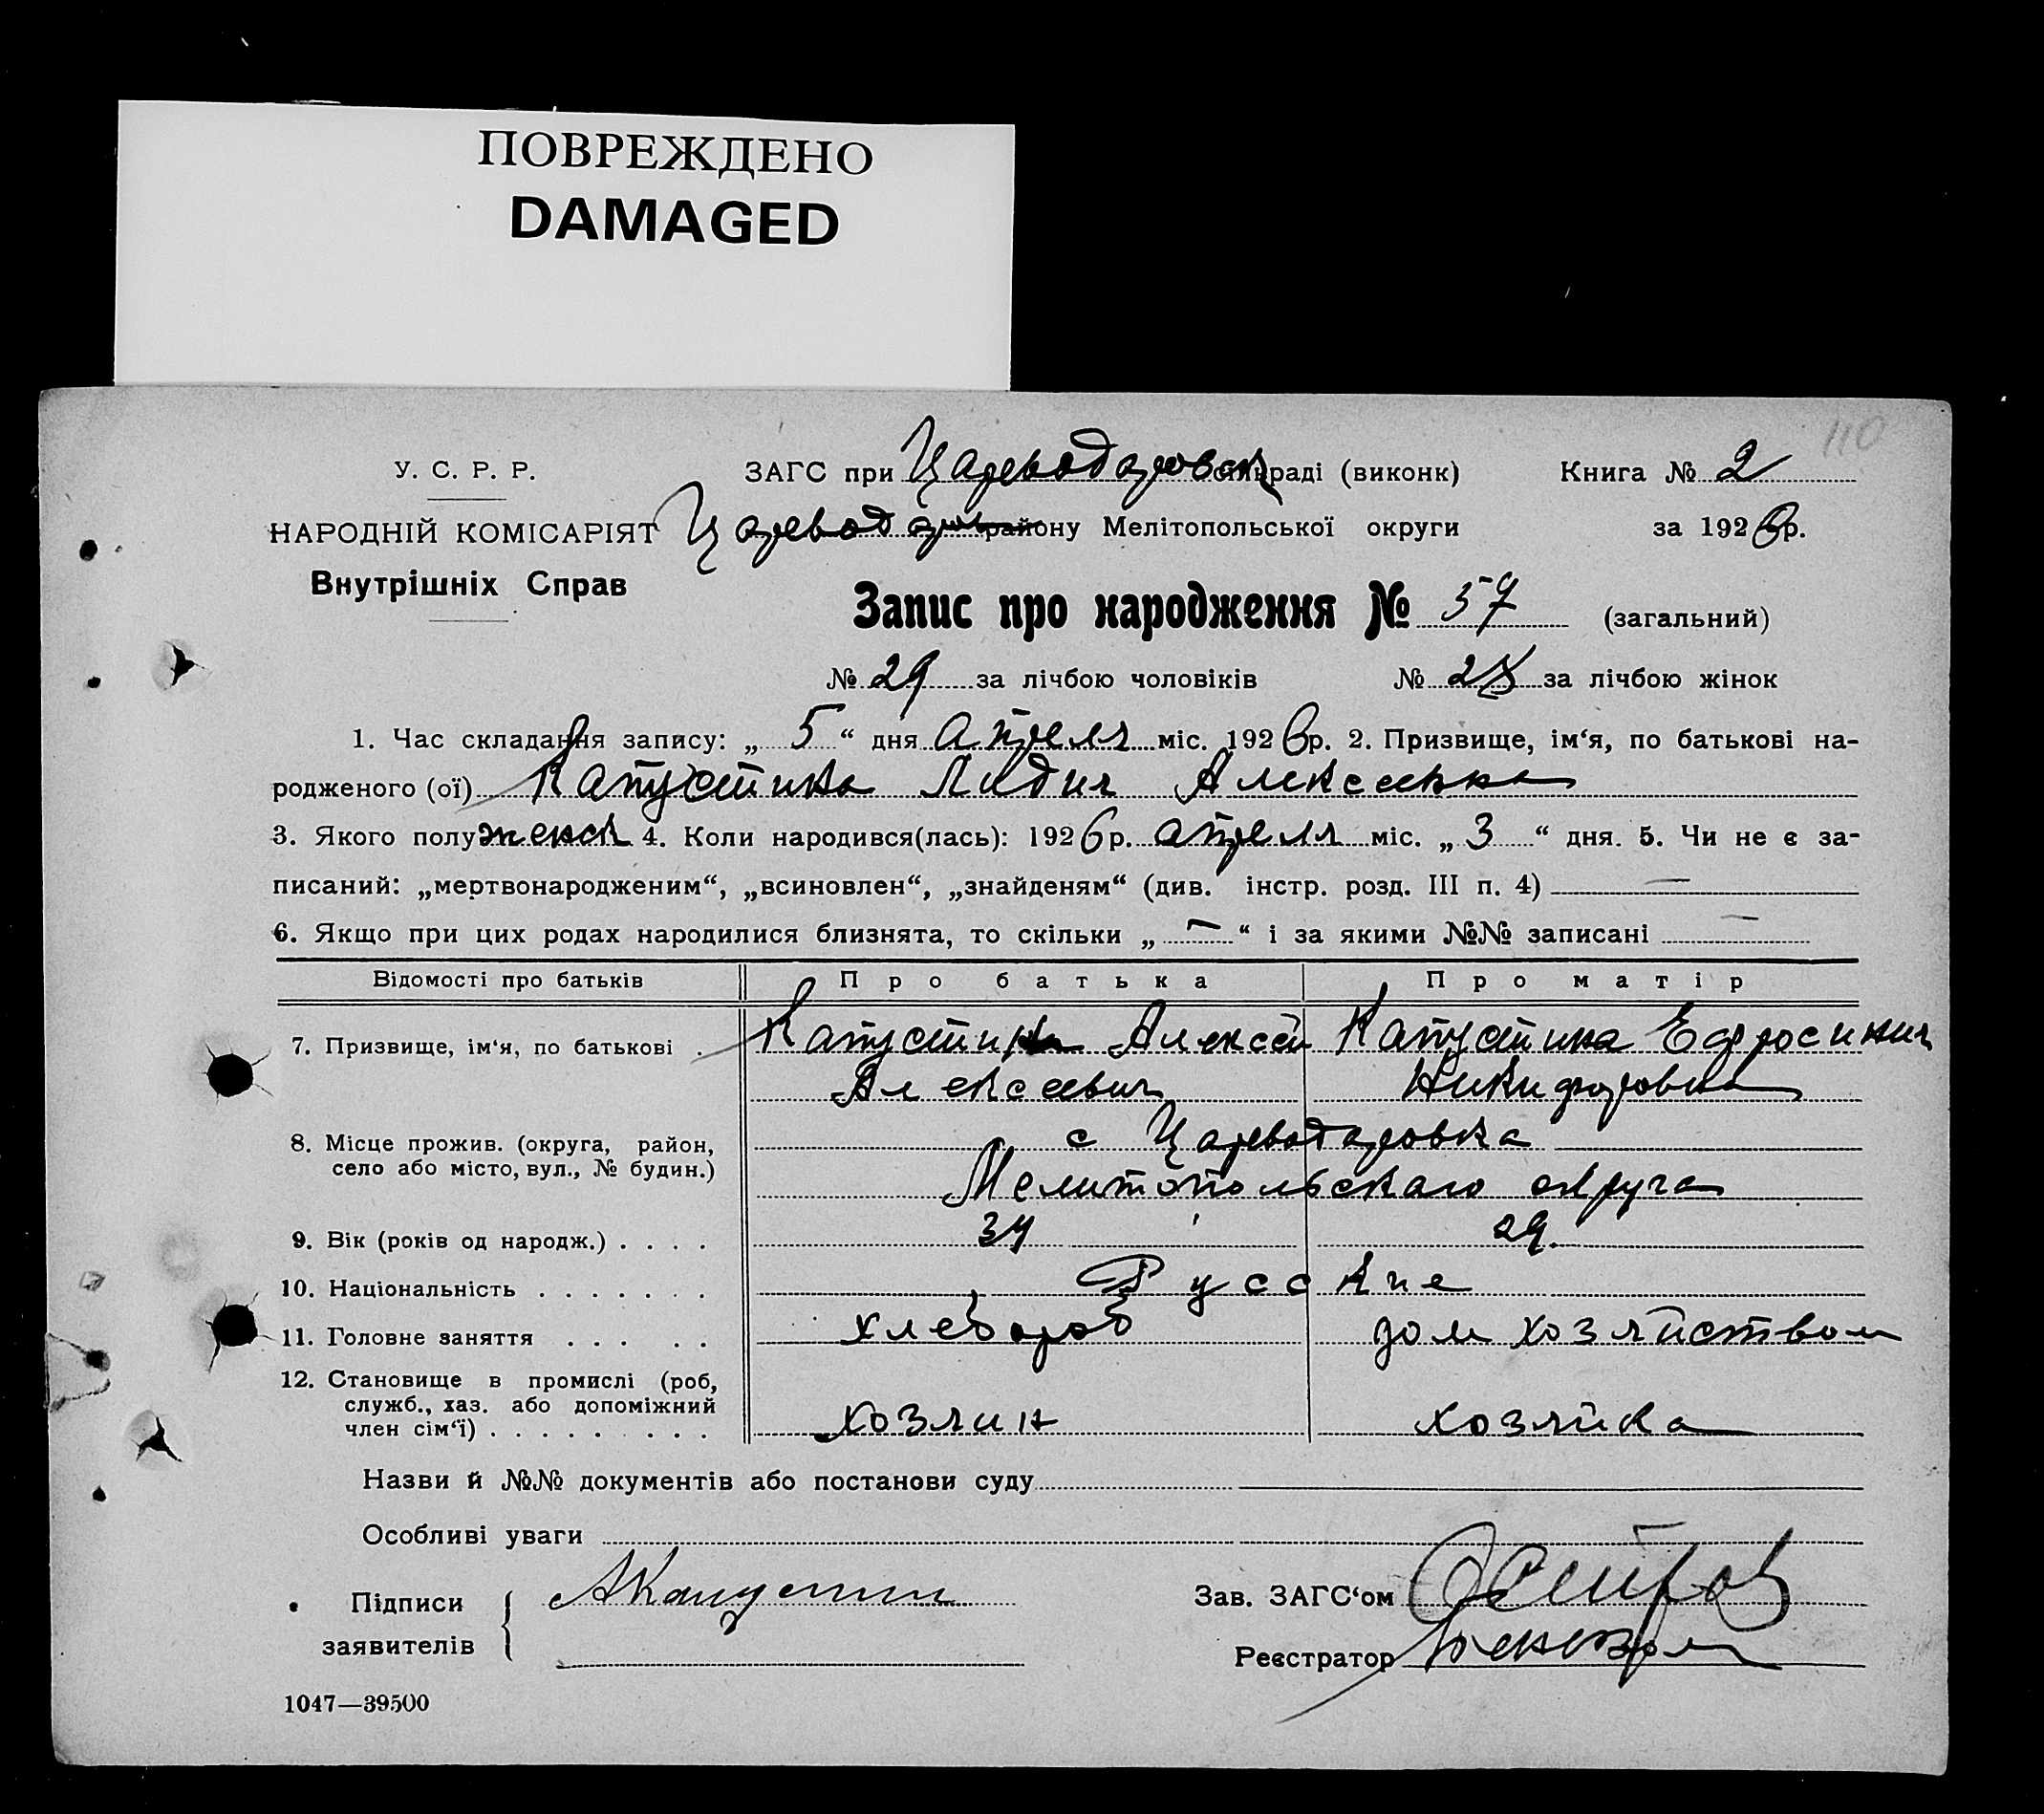 ПОВРЕЖДЕНО
DAMAGED
110
У. С. Р. Р. ЗАГС при Цареводаровск сільраді (виконк) Книга № 2
НАРОДНІЙ КОМІСАРІЯТ Цареводар району Мелітопольської округи за 1926 р.
Внутрішніх Справ
Запис про народження № 57 (загальний)
№ 29 за лічбою чоловіків № 28 за лічбою жінок
1. Час складання запису: „ 5 “ дня апреля міс. 1926 р. 2. Призвище, ім‘я, по батькові на-
родженого (ої) Капустина Лидия Алексеевна
3. Якого полу женск 4. Коли народився(лась): 1926 р. апреля міс. „ 3 “ дня. 5. Чи не є за-
писаний: „мертвонародженим“, „всиновлен“, „знайденям“ (див. інстр. розд. III п. 4) —
6. Якщо при цих родах народилися близнята, то скільки „ — “ і за якими №№ записані —
Відомості про батьків Про батька Про матір
7. Призвище, ім‘я, по батькові . Капустин Алексей Капустина Ефросиния
Алексеевич Никифоровна
8. Місце прожив. (округа, район, с Цареводаровка
село або місто, вул., № будин.) Мелитопольскаго округа
9. Вік (років од народж.) . . . . 34 29.
10. Національність . . . . . . . Русские
11. Головне заняття . . . . . хлебороб дом хозяйством
12. Становище в промислі (роб,
служб., хаз. або допоміжний
член сім‘ї) . . . . . . . . . хозяин хозяйка
Назви й №№ документів або постанови суду
Особливі уваги
Підписи АКапустин Зав. ЗАГС‘ом
заявителів Реєстратор
1047—39500